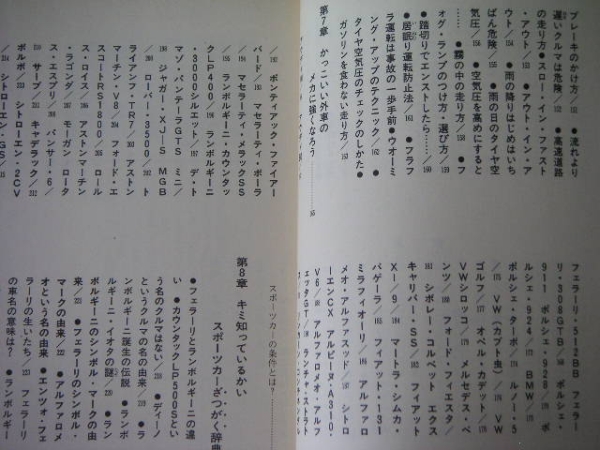 ブレーキのかけ方/152 ●流れより
遅いクルマは危険/152 ●高速道路
の走り方●スロー・イン・ファスト
・アウト/154 ●アウト・イン・ア
ウト/154 ●雨の降りはじめはいち
ばん危険/155 ●雨の日のタイヤ空
気圧 ●空気圧を高めにすると
……●霧の中の走り方/158 ●フ
ォグ・ランプのつけ方・選び方/159
●踏切りでエンストしたら……/160
●居眠り運転防止法/161 ●フラフ
ラ運転は事故の一歩手前●ウオーミ
ング・アップのテクニック/162 ●
タイヤ空気圧のチェックのしかた●
ガソリンを食わない走り方/163
第7章 かっこいい外車の
メカに強くなろう
フェラーリ512BB フェラー
リ・308GTB/168 ポルシェ・
911 ポルシェ・928 ポ
ルシェ・924 BMW
ポルシェ・ターボ ルノー・5
VW(カブト虫) VW
ゴルフ オペル・カデット
VWシロッコ メルセデス・ベ
ンツ フォード・フィエスタ
シボレー・コルベット エクス
キャリバー・SS フィアット
X1/9 マトラ・シムカ・
バゲーラ フィアット・131
ミラフィオーリ アルファロ
メオ・アルファスッド シトロ
エンCX アルピーヌ・A310・
V6 アルファロメオ・アルフ
ェッタGT ランチャ・ストラト
ポンティアック・ファイアー
バード マセラーティ・ボーラ
マセラーティ・メラックSS
ランボルギーニ・カウンタッ
クLP400 ランボルギーニ
・3000シルエット/197 デ・ト
マゾ・パンテーラGTS ミニ
ジャガー・XJ-S MGB
ローバー・3500 ト
ライアンフ・TR7 アストン
マーチン・V8 フォード・エ
スコートRS1800 ロール
ス・ロイス アストンマーチン
・ラゴンダ モーガン ロータ
ス・エスプリ パンサー・6
サーブ キャデラック/212
ボルボ シトロエン・2CV
シトロエン・GS
スポーツカーの条件とは?
第8章 キミ知っているかい
スポーツカーざつがく辞典
●フェラーリとランボルギーニの違
い ●カウンタックLP500Sとい
う名のクルマはない ●ディーノ
というクルマの名の由来 ●ラ
ンボルギーニ誕生の伝説 ●ランボ
ルギーニ・イオタの謎 ●ラン
ボルギーニのシンボル・マークの由
来/221 ●フェラーリのシンボル・
マークの由来/222 ●アルファロメ
オという名の由来 ●エンツォ・フェ
ラーリの生いたち/223 フェラーリ
の車名の意味は? ●ランボルギー